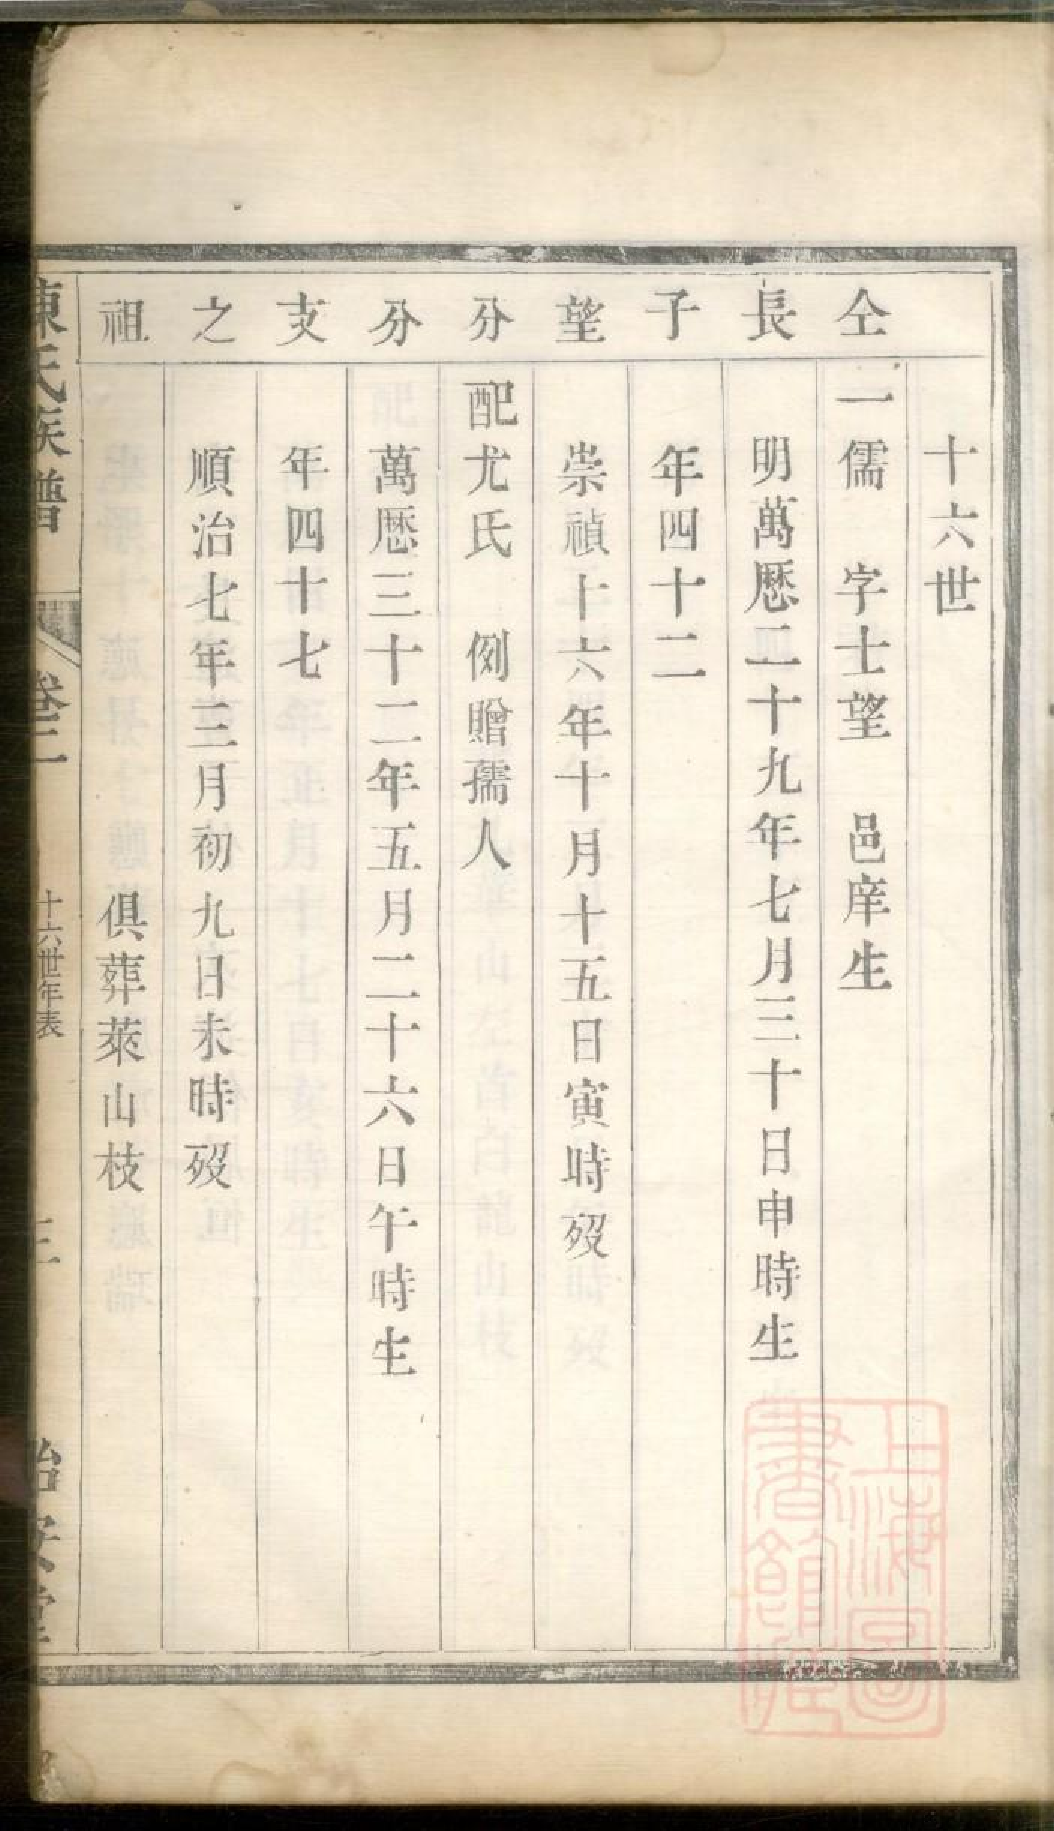 仝長子望分分支之祖
十六世
一儒　字士望　邑庠生
明萬厯二十九年七月三十日申時生
年四十二
崇禎十六年十月十五日寅時歿
配尤氏　例贈孺人
萬厯三十二年五月二十六日午時生
年四十七
順治七年三月初九日未時歿
俱葬萊山枝
陳氏族譜
卷二
十六世年表
三
治安堂
上海圖書館藏